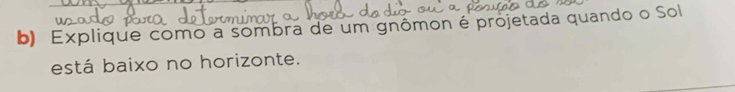 usado para determinar a hora do dia ou a posição do
b) Explique como a sombra de um gnômon é projetada quando o Sol
está baixo no horizonte.